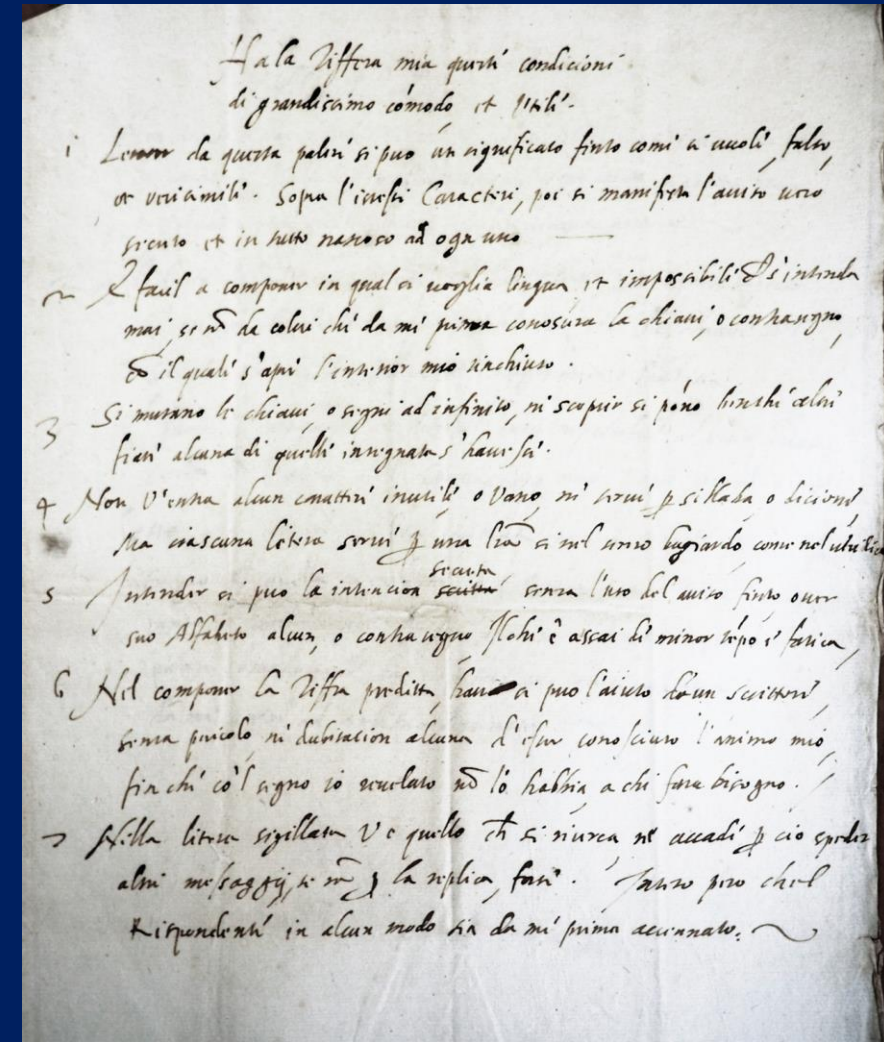 Ha la Ziffera mia questi condicioni
di grandissimo comodo, et Utile.
1 Leuar da questa palese si puo un significato finto come si vuole, falso,
et verisimile. Sopra l'istessi Caratteri, poi si manifesta l'auiso uero
secreto et in tutto nascoso ad ogn uno
2 È facil a componer in qual si voglia lingua et impossibile ch' s'intenda
mai, se nõ da colui chi da mi prima conoscera la chiaue, o contrasegno,
cõ il quale s'apre l'interior mio rinchiuso.
3 Si mutano le chiaui, o segni ad infinito, ni scoprir si põno benche altri
fiate alcuna di quelle insegnata s'hauesse.
4 Non v'entra alcun carattere inutile, o vano, ni serue p sillaba, o dicione,
Ma ciascuna litera serue p una lra si nel senso bugiardo come nel
5 Intender si puo la intencion scritta secreta senza l'uso del auiso finto ouer
suo Alfabeto alcun, o contrasegno Ilche è assai di minor tẽpo e fatica,
6 Nel componer la Ziffra preditta, hauer si puo l'aiuto de un scrittore,
senza pericolo, ni dubitacion alcuna d'esser conosciuto l'animo mio,
fin che cõ'l segno io reuelato nõ lo habbia, a chi fara bisogno.
7 Nella litera sigillata v'e quello ch si ricerca, ne accade p cio spedir
altri messaggij, se nõ p la replica, forse. Intero pero chel
Rispondente in alcun modo sia da me prima accennato.